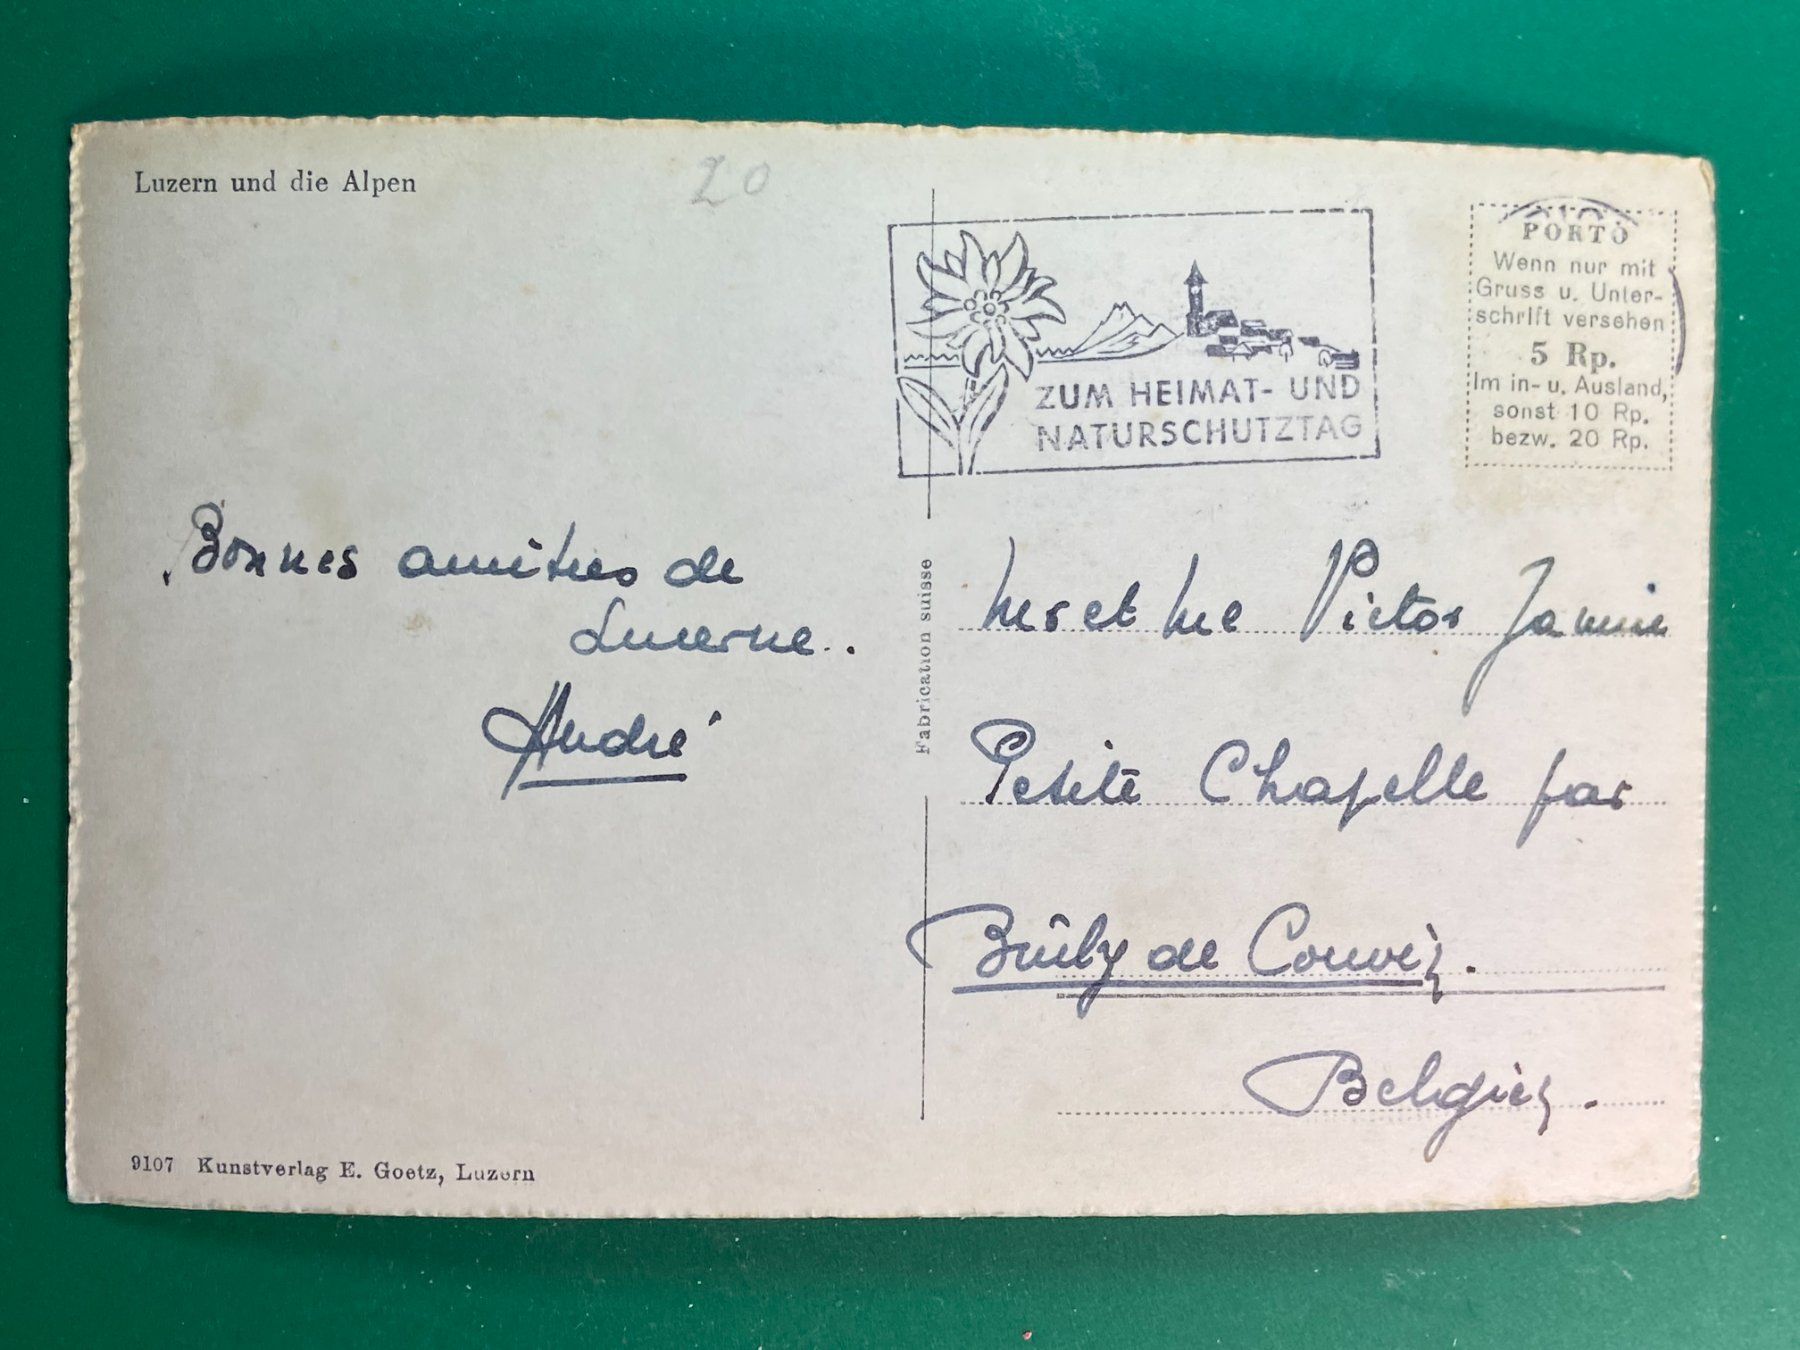 Luzern und die Alpen
20
ZUM HEIMAT- UND
NATURSCHUTZTAG
PORTO
Wenn nur mit
Gruss u. Unter-
schrift versehen
5 Rp.
Im in- u. Ausland,
sonst 10 Rp.
bezw. 20 Rp.
Bonnes amitiés de
Lucerne..
André
Fabrication suisse
et Victor
Petite Chapelle par
Brûly de Couvin.
Belgien.
9107 Kunstverlag E. Goetz, Luzern